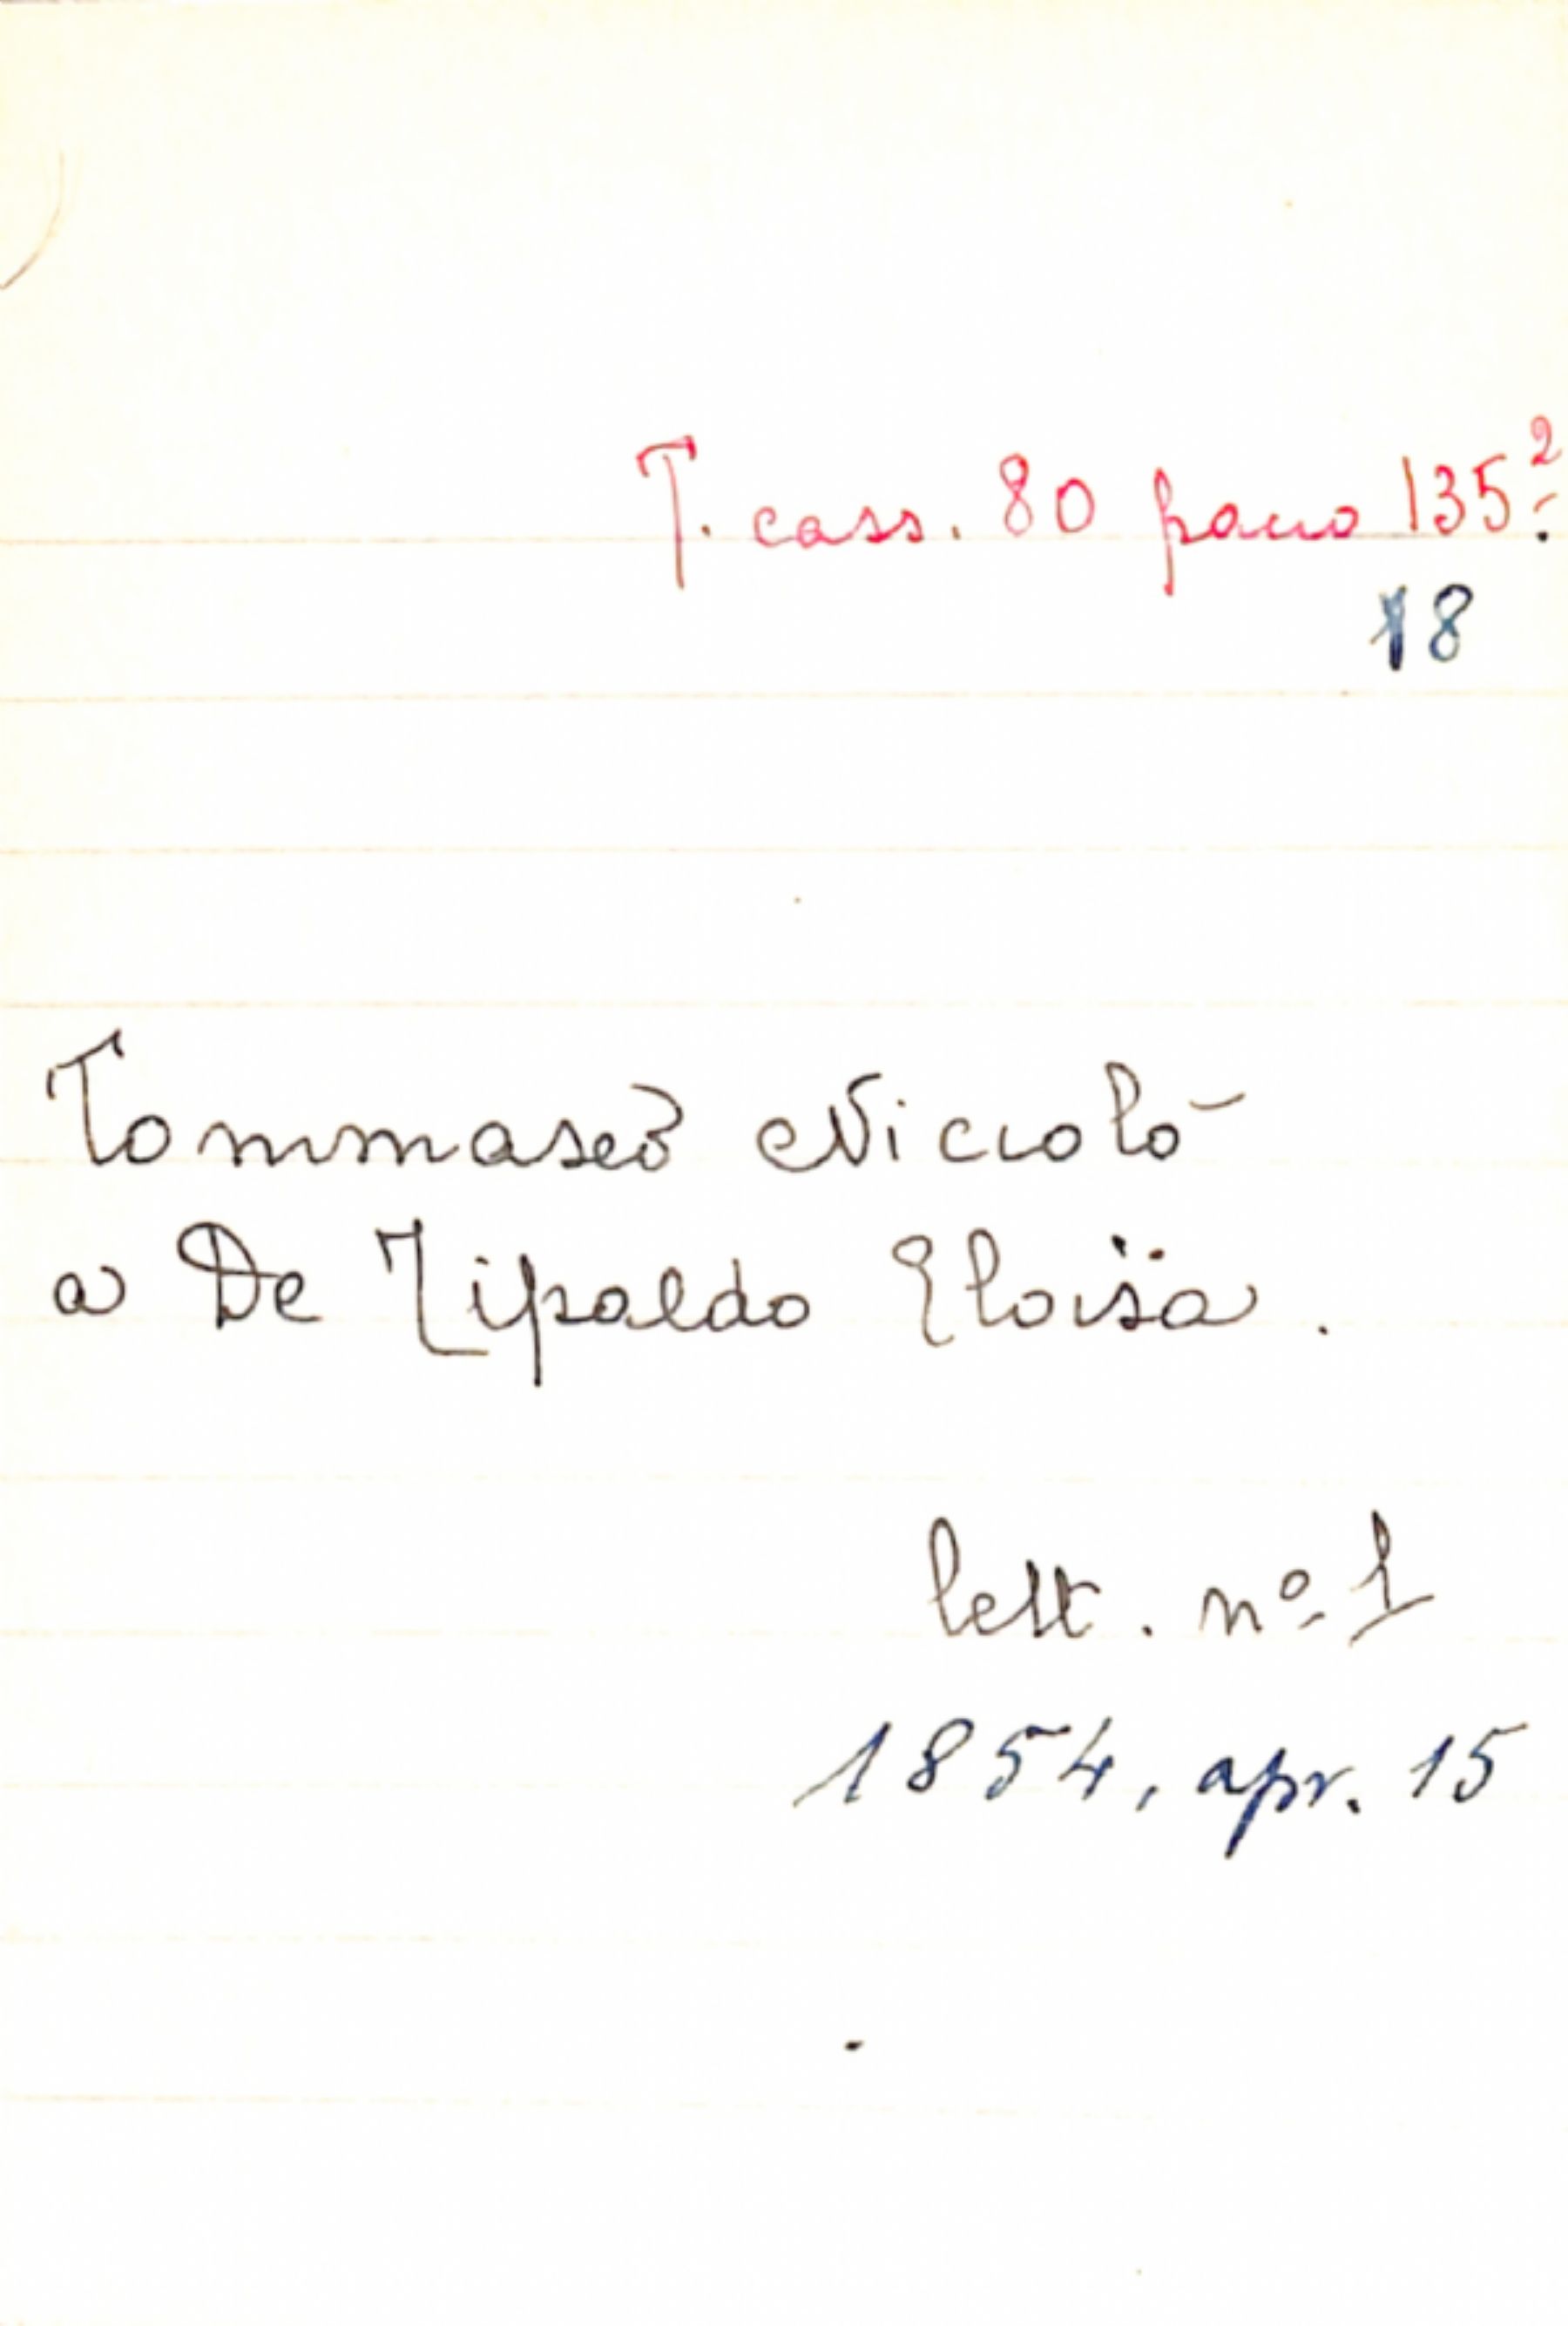 T. cass. 80 pacco 135.²
18
Tommaseo Niccolò
a De Tipaldo Eloisa.
lett. nº 1
1854, apr. 15